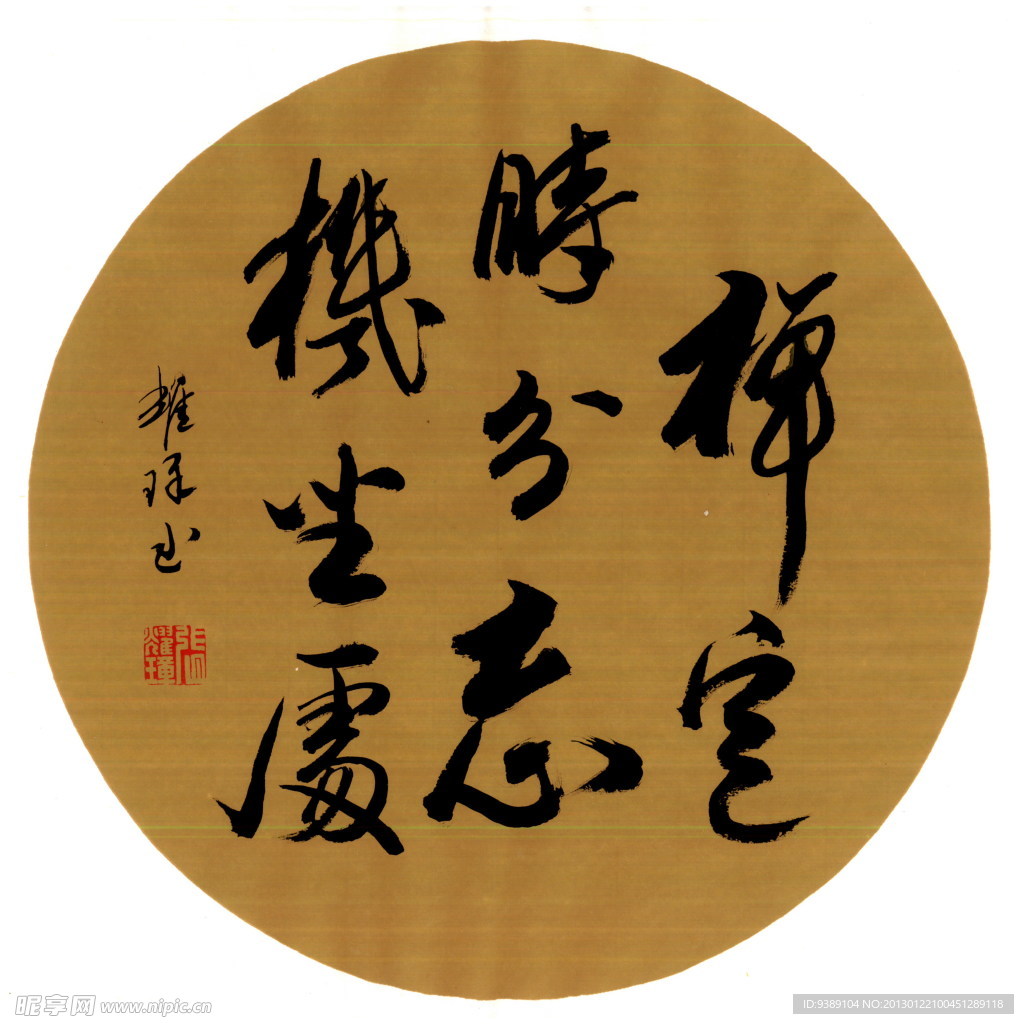 禪定
時分忘
機坐處
昵享网 www.nipic.cn
ID:9389104 NO:20130122100451289118